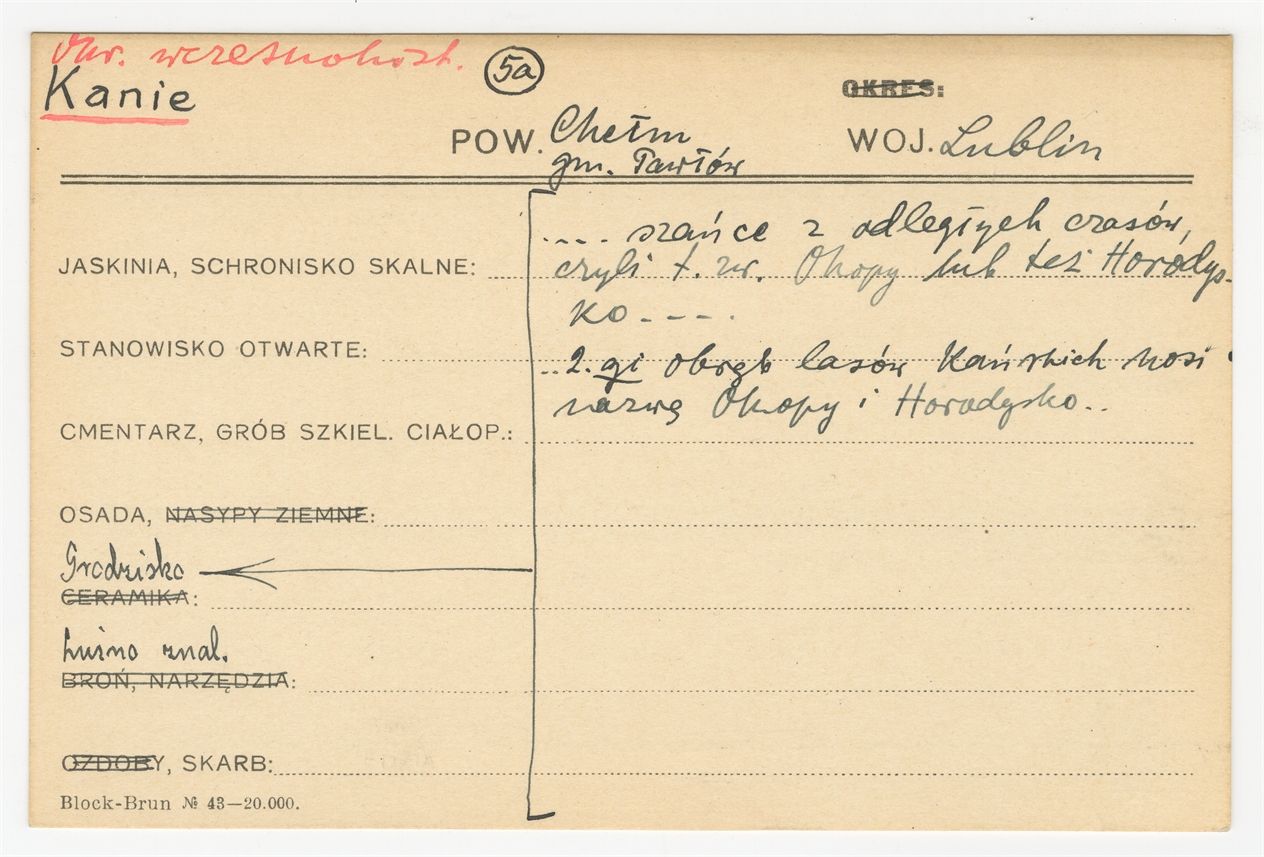 Okr. wczesnohist.
Kanie
5a
OKRES:
POW. Chełm
gm. Pawłów
WOJ. Lublin
.... szańce z odległych czasów,
JASKINIA, SCHRONISKO SKALNE: czyli t. zw. Okopy lub też Horodys-
ko----.
STANOWISKO OTWARTE: ..2.gi obręb lasów Kańskich nosi
nazwę Okopy i Horodysko..
CMENTARZ, GRÓB SZKIEL. CIAŁOP.:
OSADA, NASYPY ZIEMNE:
Grodzisko
CERAMIKA:
Luźno znal.
BROŃ, NARZĘDZIA:
OZDOBY, SKARB:
Block-Brun № 43—20.000.